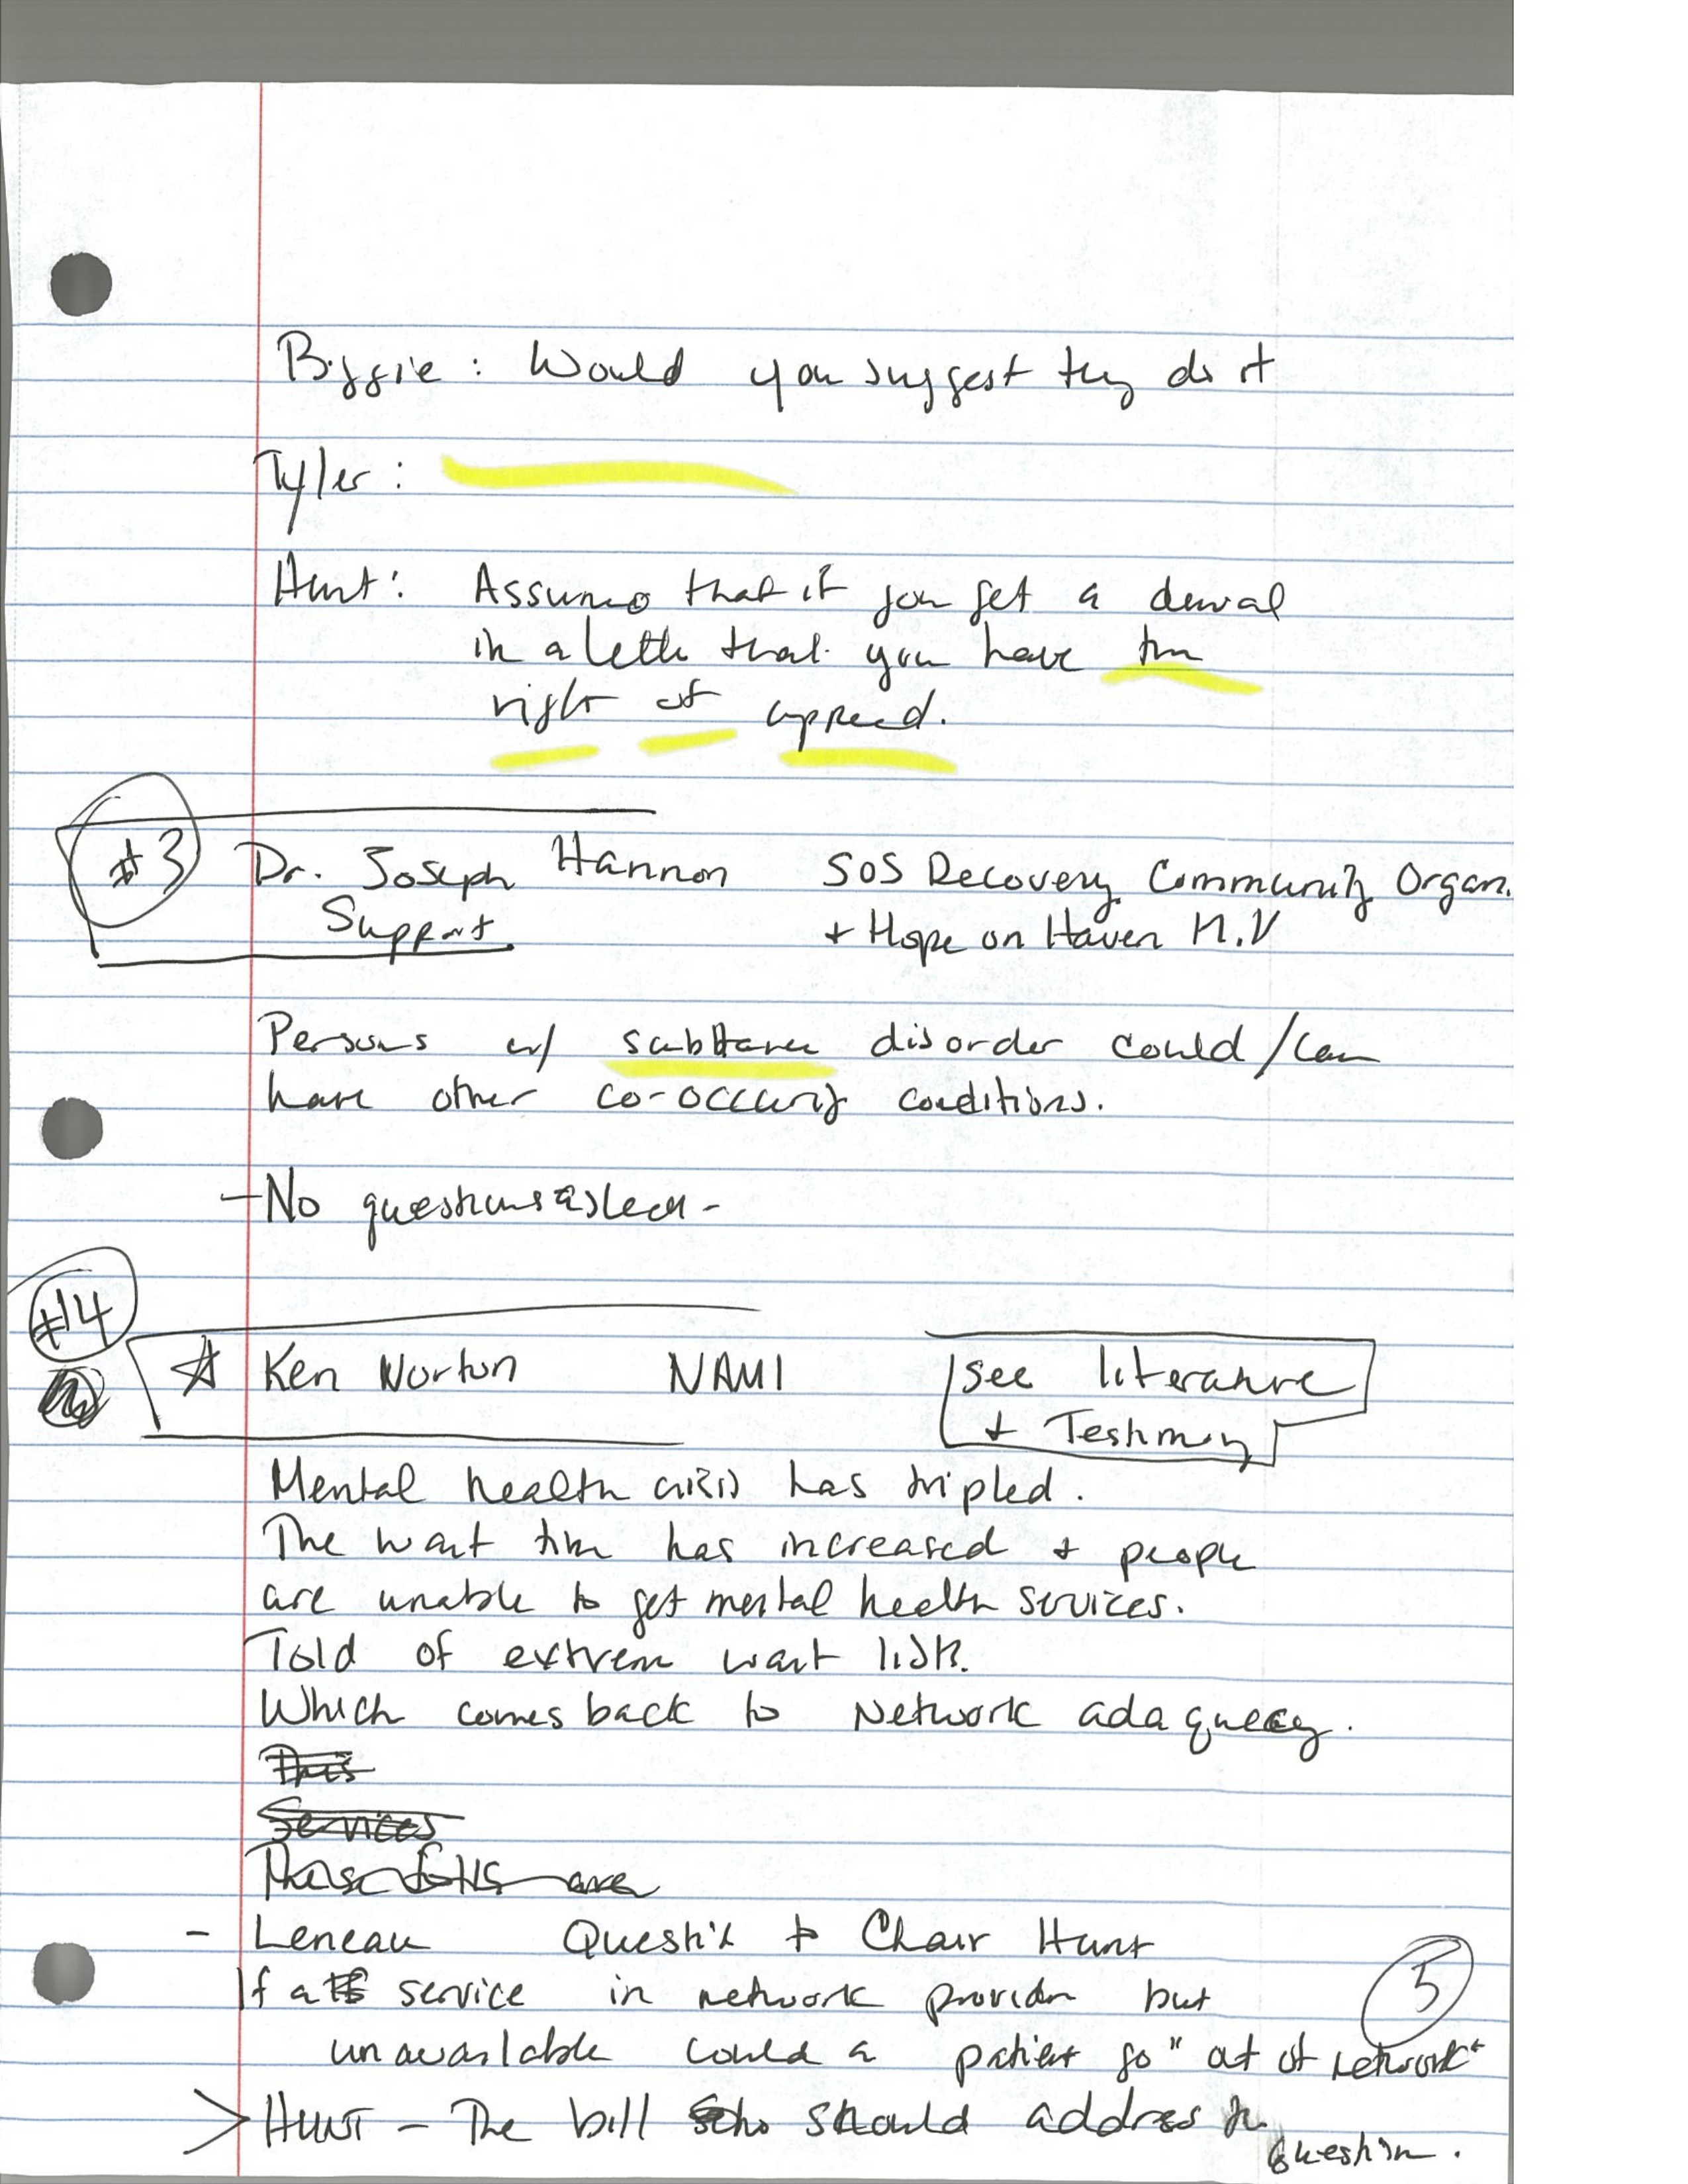 Biggie: Would you suggest they do it
Tyler:
Hunt: Assumes that if you get a denial
in a letter that you have the
right of appeal.
#3 Dr. Joseph Hannon SOS Recovery Community Organ.
Support + Hope on Haven
Persons w/ substance disorder could/can
have other co-occurring conditions.
- No questions asked -
#4
Ken Norton NAMI see literature
+ Testimony
Mental health crisis has tripled.
The wait time has increased + people
are unable to get mental health services.
Told of extreme wait lists.
Which comes back to Network adaquecy.
This
Services
These folks are
- Leneau Question to Chair Hunt
If a service in network provider but
unavailable could a patient go "out of network"
5
> HUNT - The bill should address the
question.